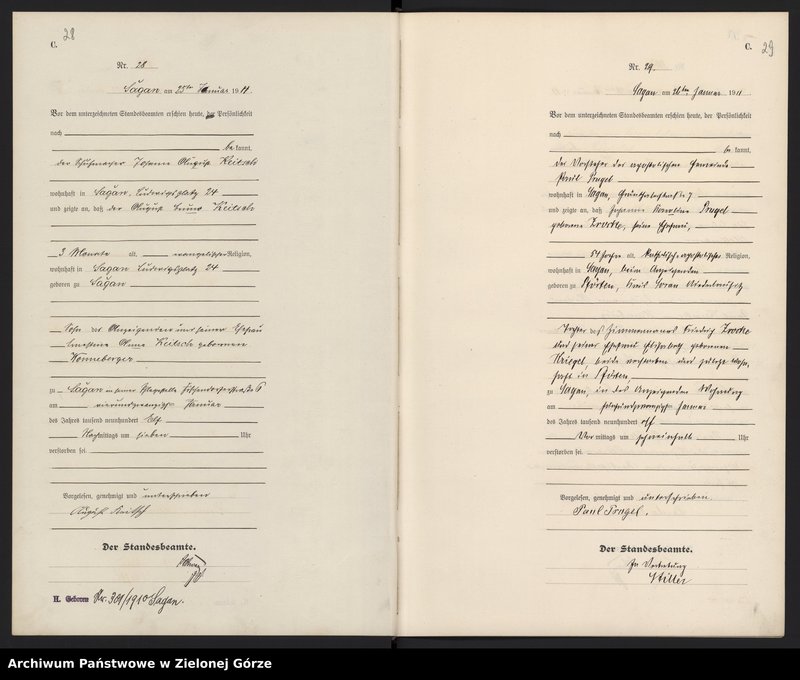 28
C.
Nr. 28
Sagan am 25ten Januar 1911.
Vor dem unterzeichneten Standesbeamten erschien heute, der Persönlichkeit
nach
be kannt,
der Schuhmacher Johann August Keitsch
wohnhaft in Sagan, Ludwigsplatz 24
und zeigte an, daß der August Bruno Keitsch
3 Monate alt, evangelischer Religion,
wohnhaft in Sagan Ludwigsplatz 24
geboren zu Sagan
Sohn des Anzeigenden und seiner Ehefrau
Anna Keitsch geborenen
Wonneberger
zu Sagan in seiner
am vierundzwanzigsten Januar
des Jahres tausend neunhundert Elf
Nachmittags um sieben Uhr
verstorben sei.
Vorgelesen, genehmigt und unterschrieben
August Keitsch
Der Standesbeamte.
H. Geboren Nr. 381/1910 Sagan.
C. 29
Nr. 29.
Sagan am 26ten Januar 1911.
Vor dem unterzeichneten Standesbeamten erschien heute, der Persönlichkeit
nach
be kannt,
der Vorsteher der apostolischen Gemeinde
Paul Pragel
wohnhaft in Sagan, 7
und zeigte an, daß Johanna Karoline Pragel
geborene seine Ehefrau,
54 Jahre alt, katholisch-apostolischer Religion,
wohnhaft in Sagan, beim Anzeigenden
geboren zu Pförten, Kreis Sorau
Tochter des Zimmermanns Friedrich
und seiner Ehefrau Elisabeth geborenen
Kriegel, beide verstorben und zuletzt wohn-
haft in Pförten
zu Sagan, in des Anzeigenden Wohnung
am Januar
des Jahres tausend neunhundert elf
Vormittags um Uhr
verstorben sei.
Vorgelesen, genehmigt und unterschrieben.
Paul Pragel.
Der Standesbeamte.
In Vertretung
Stiller
Archiwum Państwowe w Zielonej Górze